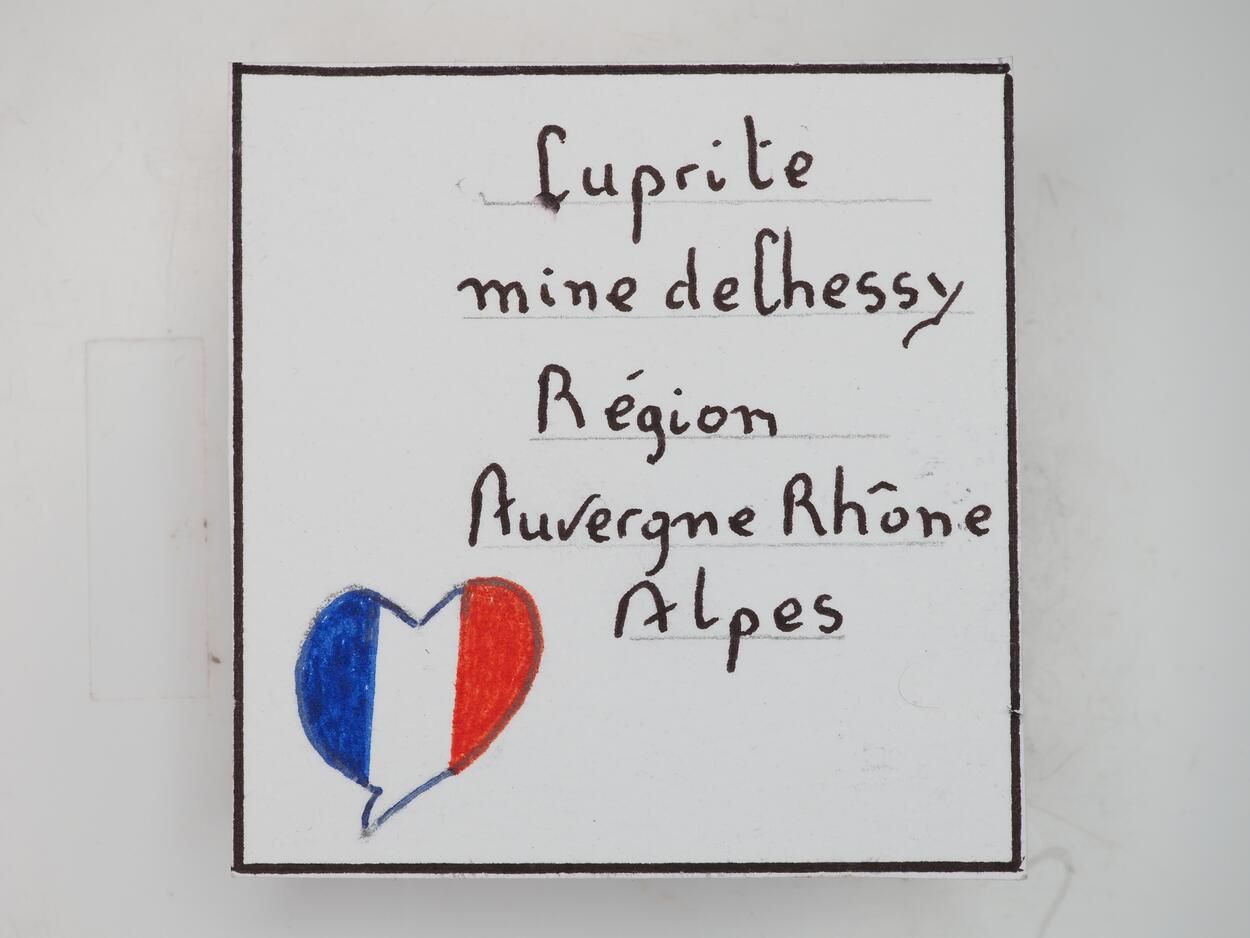 Cuprite
mine de Chessy
Région
Auvergne Rhône
Alpes